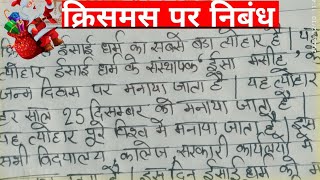 क्रिसमस पर निबंध
ईसाई धर्म का सबसे बड़ा त्योहार है। य
योहार ईसाई धर्म के संस्थापक 'ईसा मसीह'
जन्म दिवस पर मनाया जाता है। यह त्योहार
हर साल 25 दिसम्बर को मनाया जाता है।
यह त्योहार पूरे विश्व में मनाया जाता है। इस
सभी विद्यालय, कालेज सरकारी कार्यालयों में
है। इस दिन ईसाई धर्म के